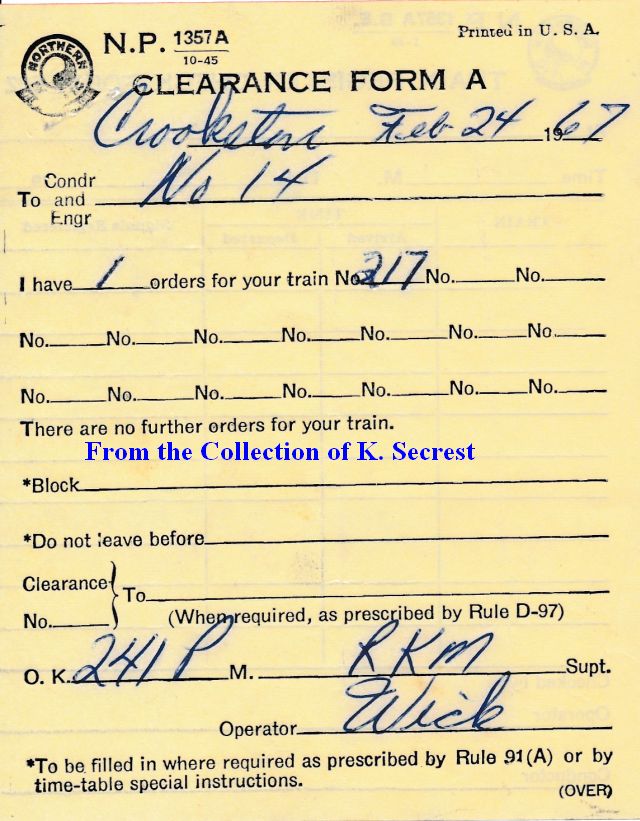 NORTHERN
N.P. 1357A
10-45
Printed in U. S. A.
CLEARANCE FORM A
Crookston Feb 24 1967
To Condr and Engr No 14
I have 1 orders for your train No. 217 No. No.
No. No. No. No. No. No. No.
No. No. No. No. No. No. No.
There are no further orders for your train.
From the Collection of K. Secrest
*Block
*Do not leave before
Clearance No. } To
(When required, as prescribed by Rule D-97)
O. K. 241 P M. RKM Supt.
Operator Wick
*To be filled in where required as prescribed by Rule 91(A) or by
time-table special instructions.
(OVER)